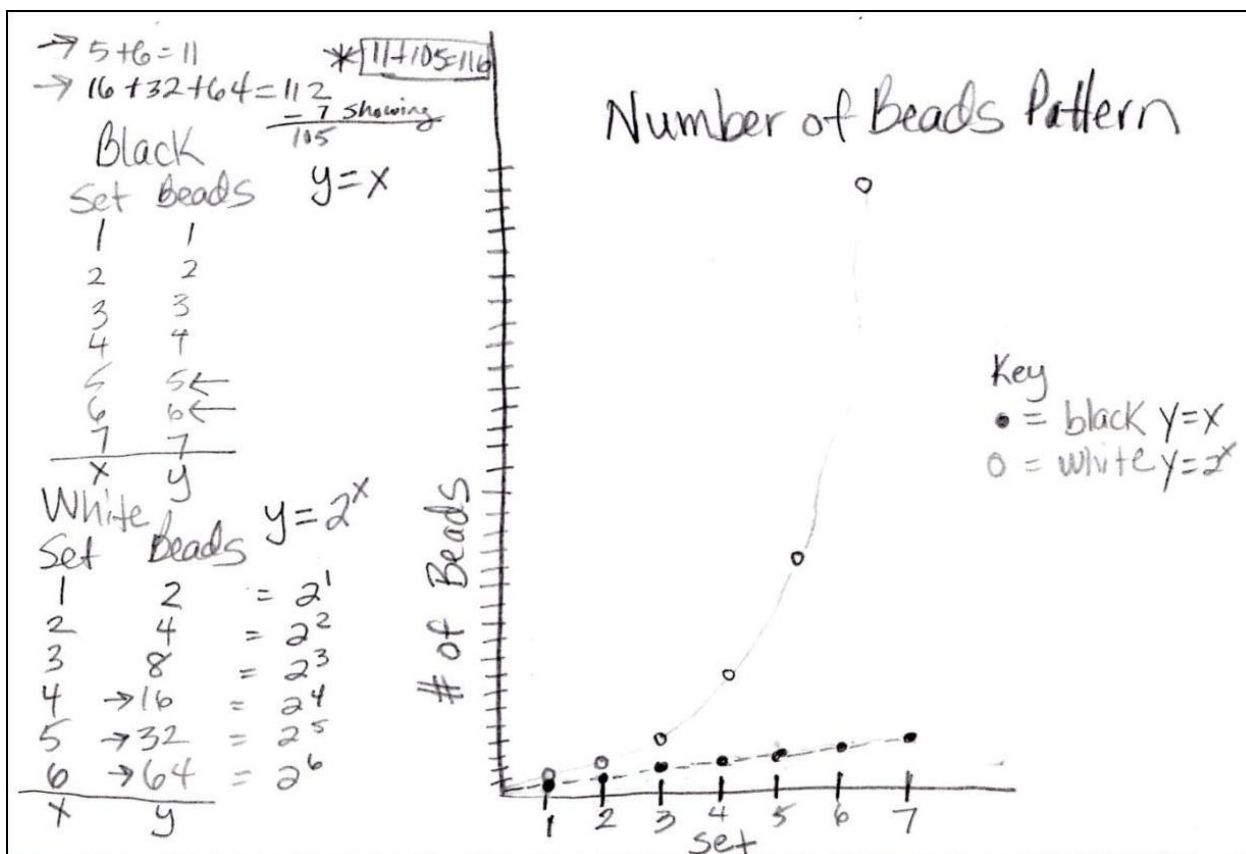 → 5+6=11
→ 16+32+64=112
- 7 showing
105
* 11+105=116
Black
Set Beads y=x
1 1
2 2
3 3
4 4
5 5←
6 6←
7 7
x y
White y=2ˣ
Set Beads
1 2 = 2¹
2 4 = 2²
3 8 = 2³
4 →16 = 2⁴
5 →32 = 2⁵
6 →64 = 2⁶
x y
Number of Beads Pattern
# of Beads
Key
● = black y=x
○ = white y=2ˣ
1 2 3 4 5 6 7
set